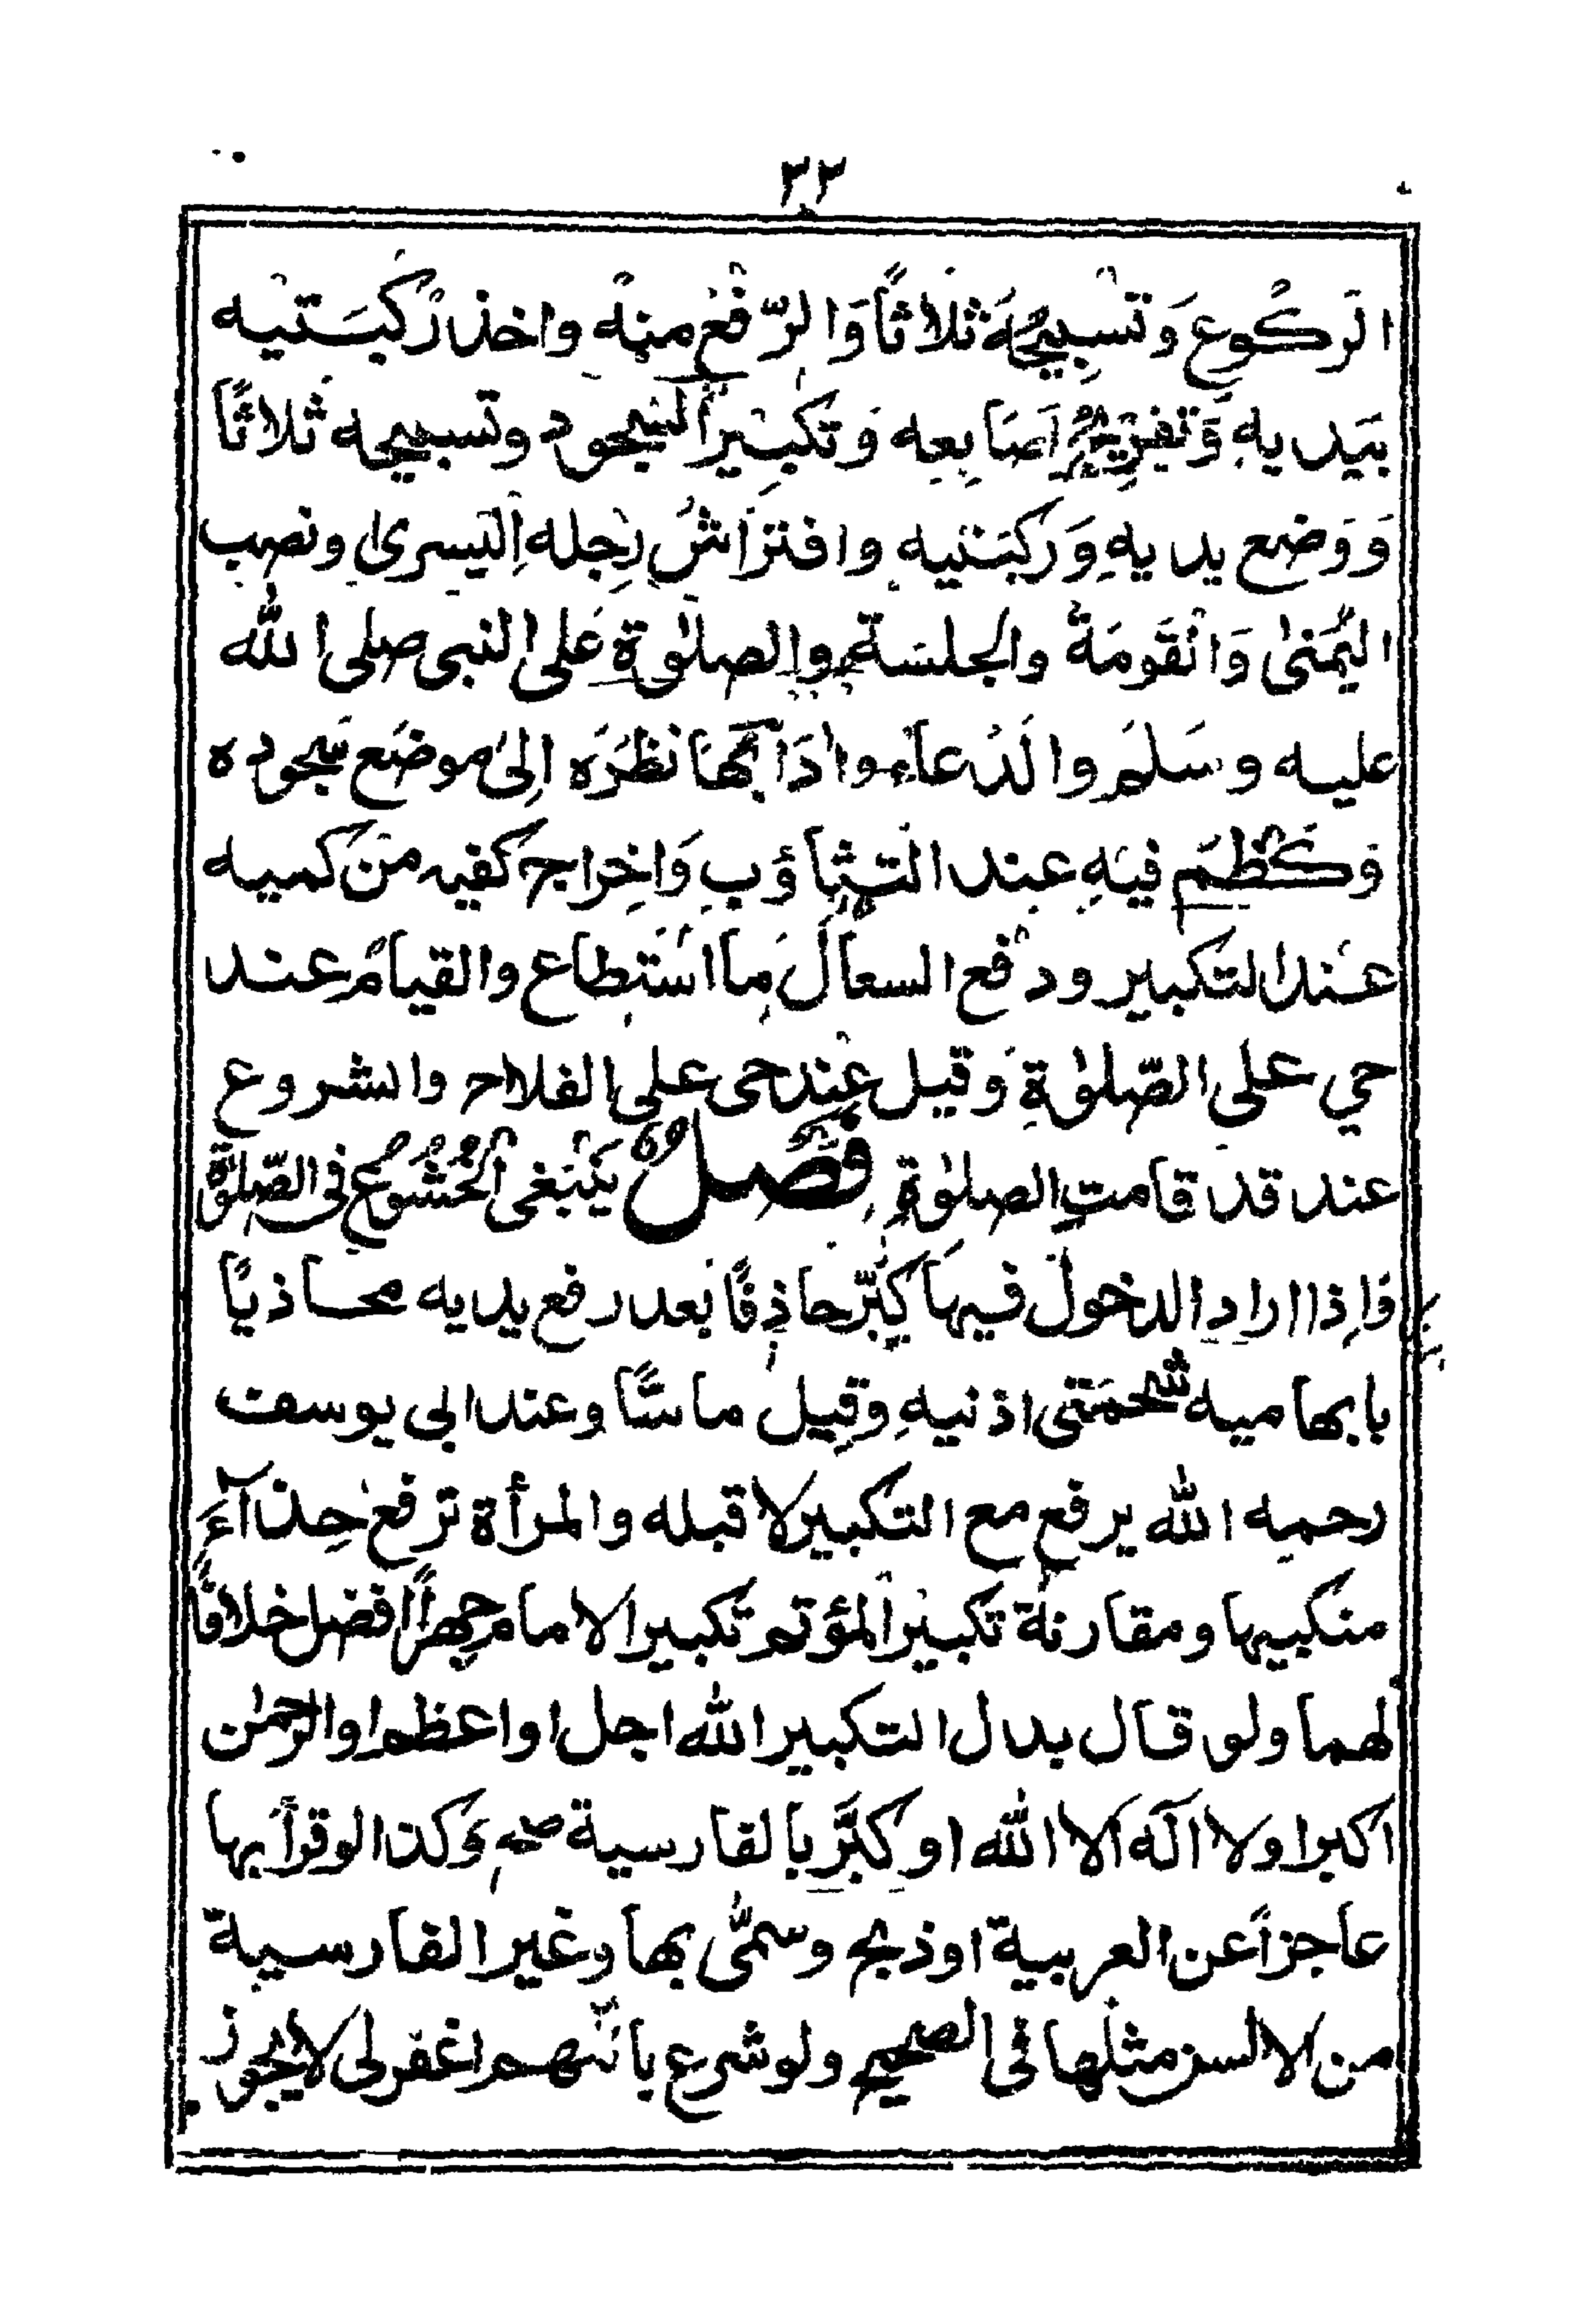 ٣٣
الركوع وتسبيحه ثلاثاً والرّفع منه واخذ ركبتيه
بيديه وتفريج اصابعه وتكبير السجود وتسبيحه ثلاثاً
ووضع يديه وركبتيه وافتراش رجله اليسرى ونصب
اليمنى والقومة والجلسة والصلوٰة على النبى صلى الله
عليه وسلم والدعاء وادابها نظره الى موضع سجوده
وكظم فيه عند التثاؤب واخراج كفيه من كميه
عند التكبير ودفع السعال ما استطاع والقيام عند
حي على الصّلوٰة وقيل عند حى على الفلاح والشروع
عند قد قامت الصلوٰة فصل ينبغى الخشوع فى الصّلوٰة
واذا اراد الدخول فيها كبّر حاذفًا بعد رفع يديه محاذيًا
بابهاميه شحمتى اذنيه وقيل ماسًّا وعند ابى يوسف
رحمه الله يرفع مع التكبير لا قبله والمرأة ترفع حذآء
منكبيها ومقارنة تكبير المؤتم تكبير الامام جهراً افضل خلافًا
لهما ولو قال بدل التكبير الله اجل او اعظم او الرحمٰن
اكبر او لا اله الا الله او كبّر بالفارسية صح وكذا لو قرأ بها
عاجزاً عن العربية او ذبح وسمّى بها وغير الفارسية
من الالسن مثلها فى الصحيح ولو شرع باللهم اغفر لى لا يجوز